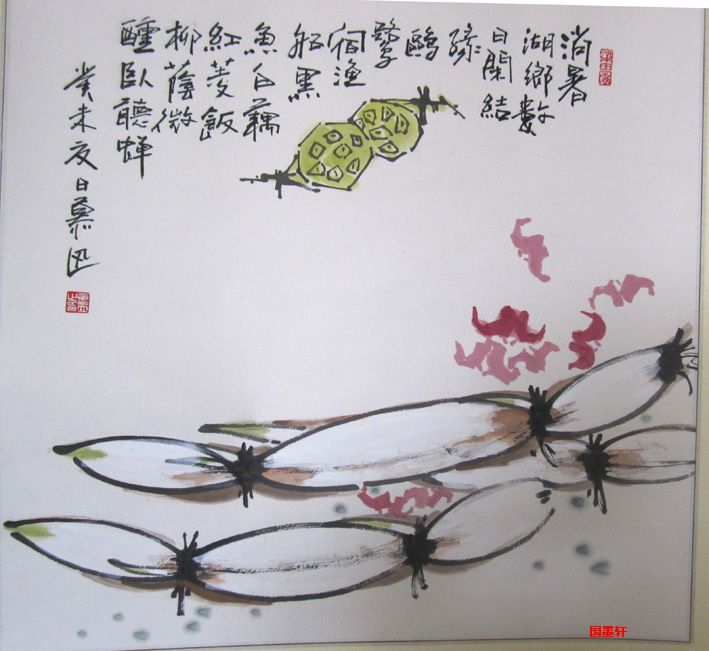 消暑
湖鄉數
日閑結
緣
鷗
鷺
宿漁
船黑
魚白藕
紅菱飯
柳蔭微
醺臥聽蟬
癸未夏日慕迅
国墨轩